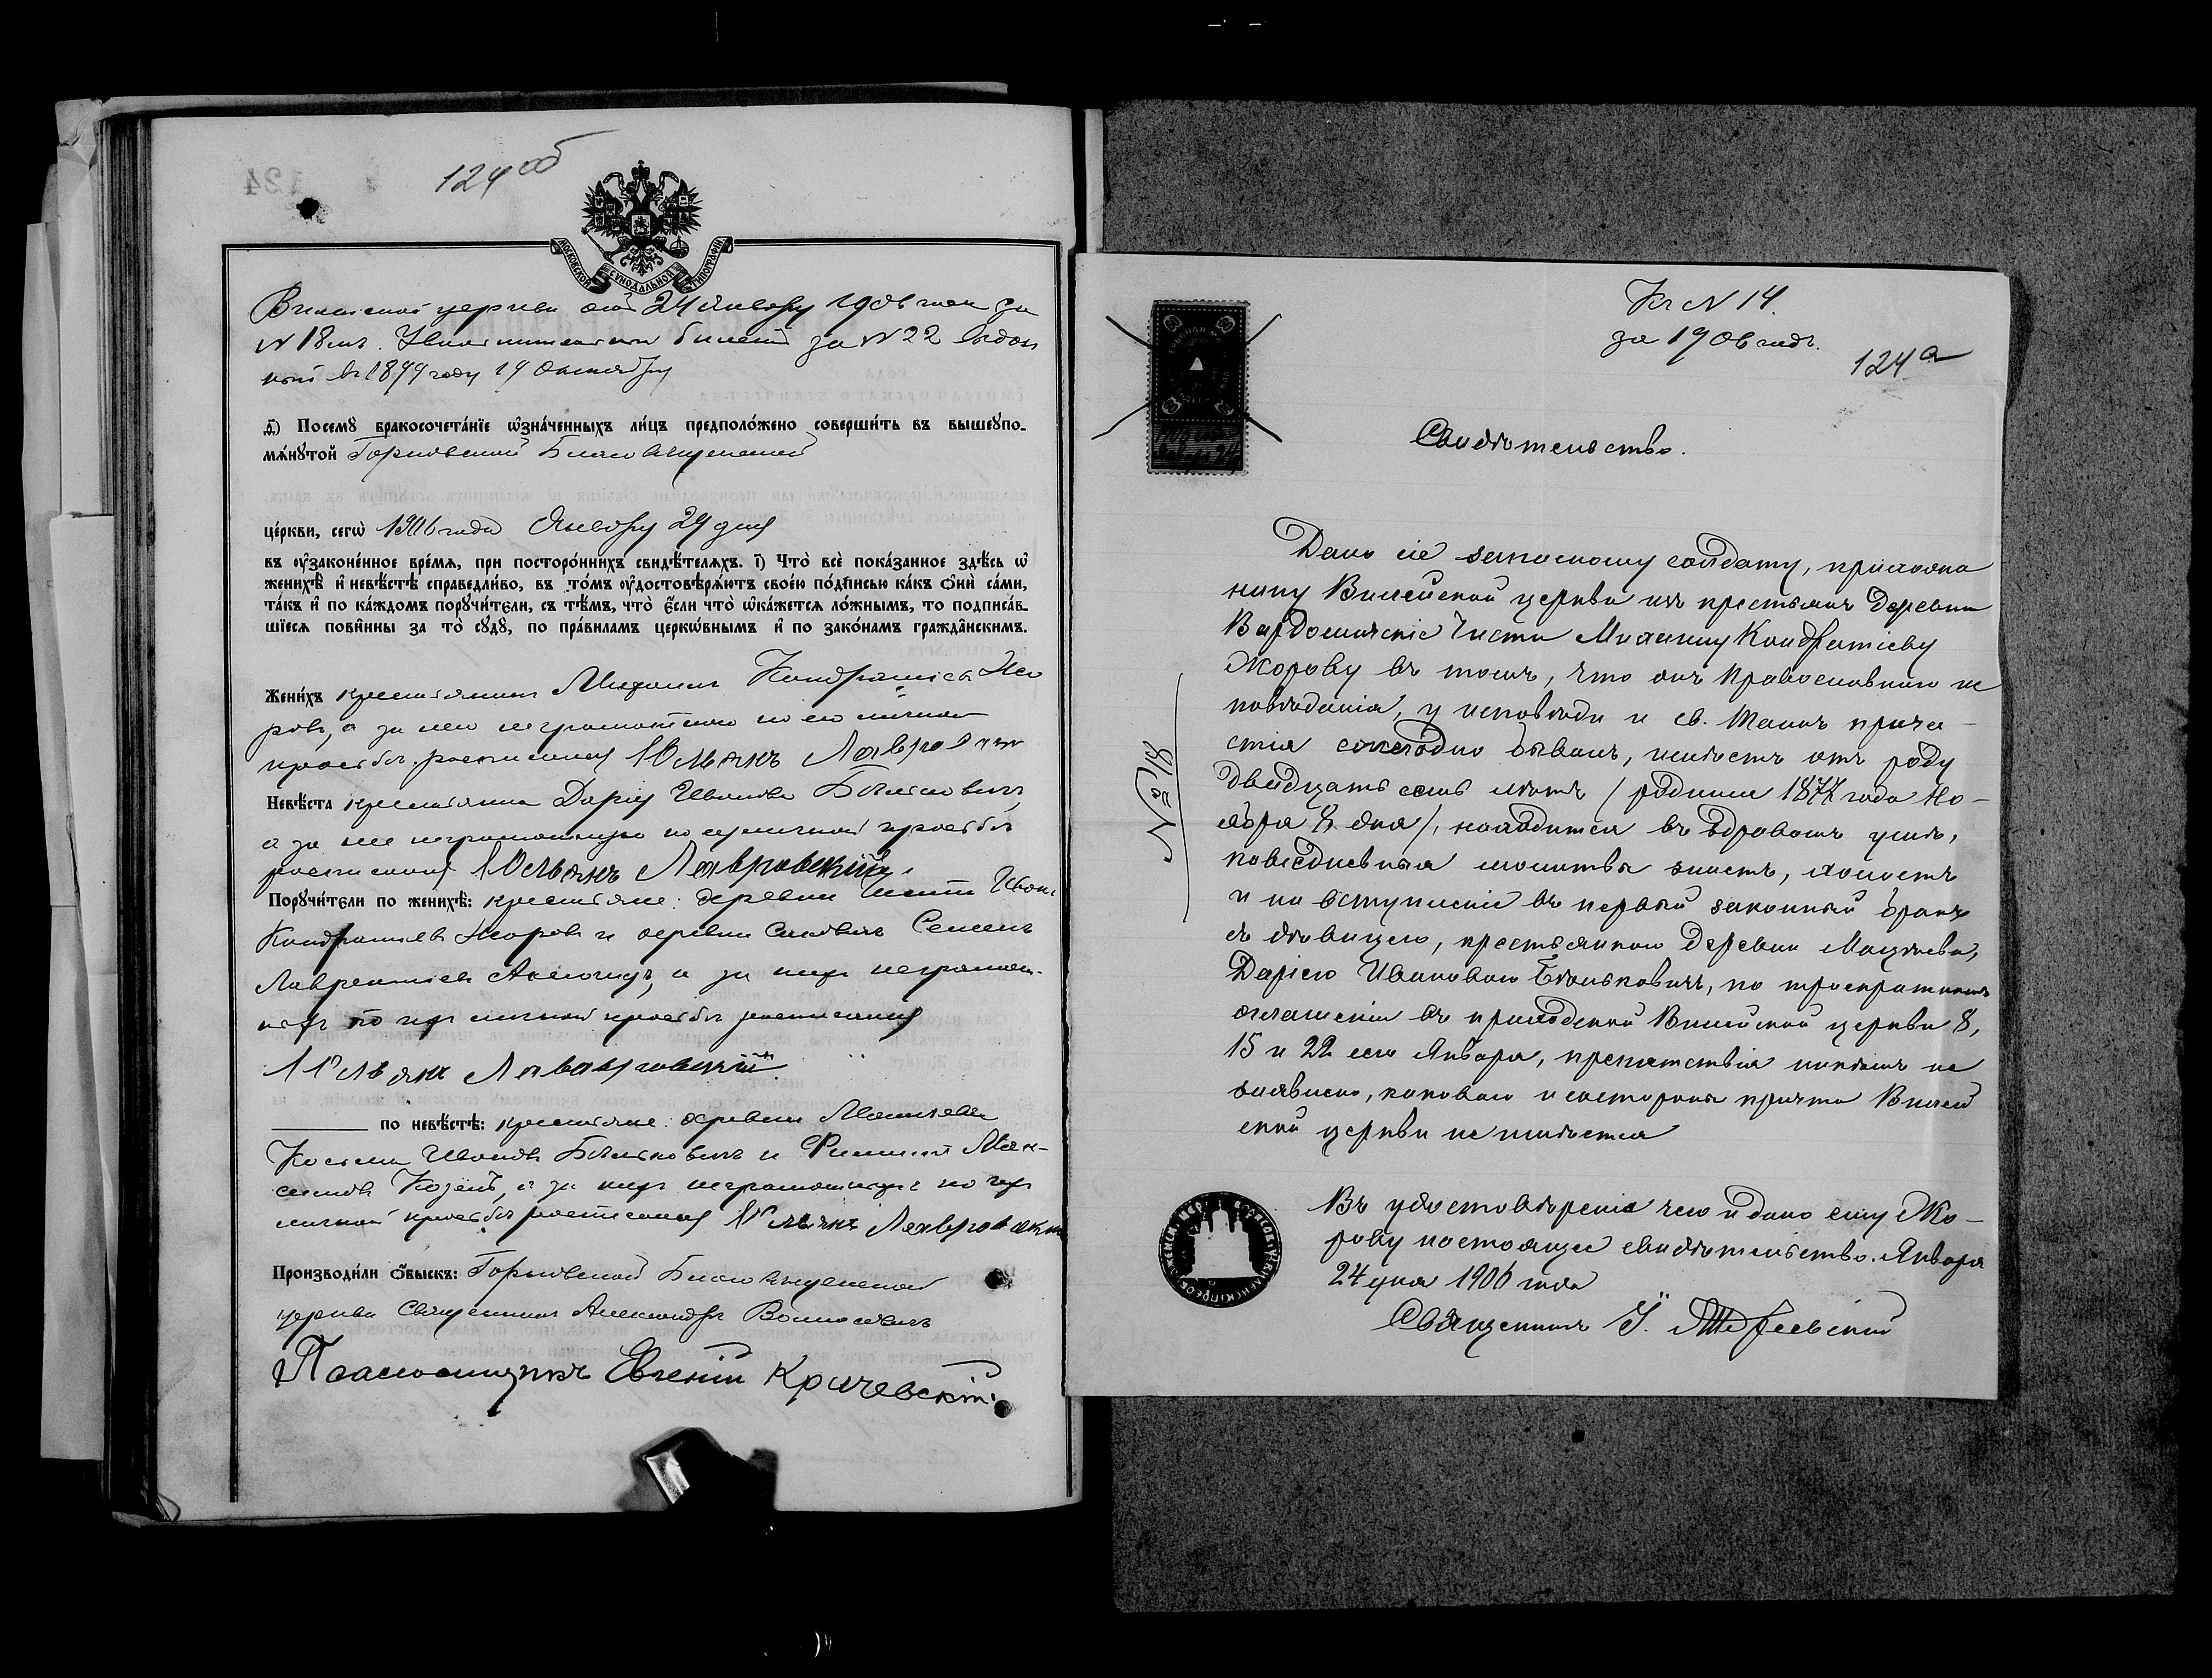 124 об
МОСКОВСКОЙ СУНОДАЛЬНОЙ ТИПОГРАФІИ
церкви отъ 24 Января 1906 года за
N 18мъ. билетъ за N 22 выдан
ный въ 1899 году 19 Октября
д҃) Посемꙋ бракосочета́нїе ѡзна́ченныхъ ли́цъ предполо́жено соверши́ть въ вышеꙋпо-
мѧ́нꙋтой Благовѣщенской
це́ркви, сегѡ̀ 1906 года Января 29 дня
въ ᲂу҆зако́не́нное вре́мѧ, при посторо́ннихъ свидѣ́телѧхъ. і҃) Что̀ всѐ пока́занное здѣ́сь ѡ҆
женихѣ̀ и҆ невѣ́стѣ справедли́во, въ то́мъ ᲂу҆достовѣрѧ́ютъ свое́ю по́дписью ка́къ ѻ҆нѝ са́ми,
та́къ и҆ по ка́ждомъ порꙋчи́тели, съ тѣ́мъ, что̀ є҆́сли что̀ ѡ҆ка́жетсѧ ло́жнымъ, то подписа́в-
шїесѧ пови́нны за то̀ сꙋдꙋ̀, по пра́виламъ церко́внымъ и҆ по зако́намъ гражда́нскимъ.
Жени́хъ крестьянинъ Михаилъ Кондратіевъ Жо
ровъ, а за него неграмотнаго по его личной
просьбѣ росписался Юльянъ
Невѣ́ста крестьянка Дарія Иванова Бѣльковичъ,
а за нее неграмотную по ея личной просьбѣ
росписался Юльянъ Лавровскій.
Порꙋчи́тели по женихѣ̀: крестьяне: деревни Чисти Иванъ
Кондратіевъ Жоровъ и деревни Семенъ
Лаврентіевъ а за нихъ неграмот-
ныхъ по ихъ личной просьбѣ росписался
Юльянъ
по невѣ́стѣ: крестьяне: деревни
Иванов Бѣльковичъ и Мак-
симовъ Козелъ, а за нихъ неграмотныхъ по ихъ
личной просьбѣ росписался Юльянъ
Производи́ли ѻ҆́быскъ: Благовѣщенской
церкви Священникъ Александръ
Псаломщикъ Евгеній Кричевскій.
Къ N 14.
за 1906 годъ.
124 а
Свидѣтельство.
Дано сіе запасному солдату, прихожа
нину Вилейской церкви изъ крестьянъ деревни
Чисти Михаилу Кондратіеву
Жорову въ томъ, что онъ Православнаго ис
повѣданія, у исповѣди и св. Таинъ прича-
стія ежегодно бывалъ, имѣетъ отъ роду
двадцать семь лѣтъ (родился 1877 года Но-
ября 8 дня), находится въ здравомъ умѣ,
повседневныя молитвы знаетъ, холостъ
и на вступленіе въ первый законный бракъ
съ дѣвицею, крестьянкою деревни
Даріею Ивановою Бѣльковичъ, по троекратномъ
оглашеніи въ приходской Вилейской церкви 8,
15 и 22 сего Января, препятствія никѣмъ не
заявлено, каковаго и со стороны причта Вилей
ской церкви не имѣется
Въ удостовѣреніе чего и дано ему Жо-
рову настоящее свидѣтельство. Января
24 дня 1906 года
Священникъ І.
№ 18